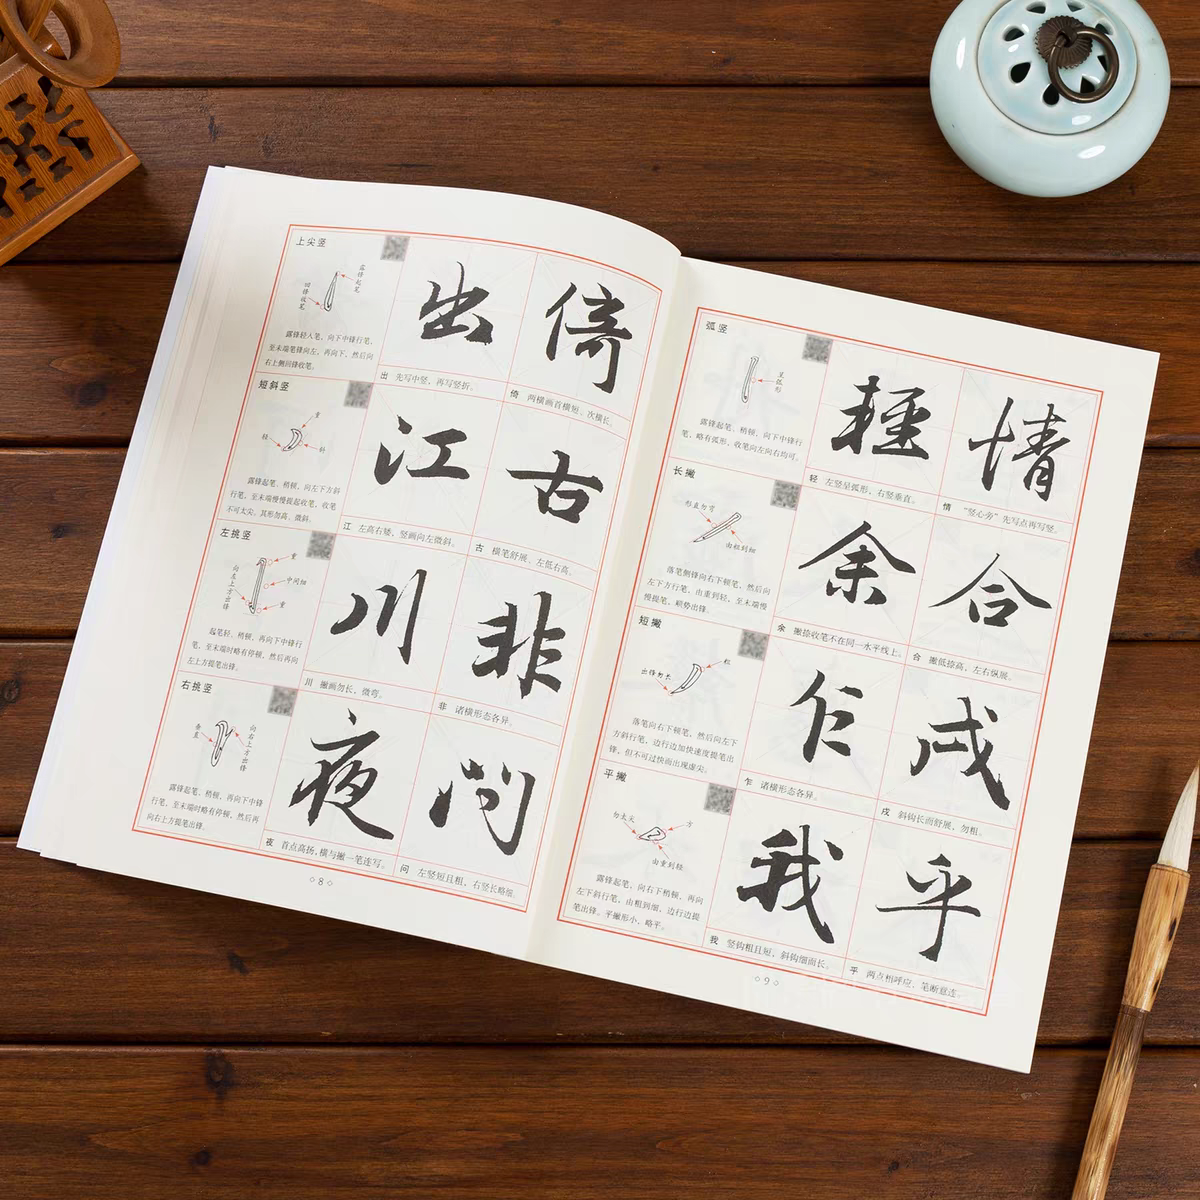 上尖竖
露锋起笔
回锋收笔
露锋轻入笔，向下中锋行笔，
至末端笔锋向左，再向下，然后向
右上侧回锋收笔。
出
倚
出 先写中竖，再写竖折。
倚 两横画首横短、次横长。
短斜竖
重
轻
斜
露锋起笔、稍顿，向左下方斜
行笔，至末端慢慢提起收笔，收笔
不可太尖。其形勿高、微斜。
江
古
江 左高右矮，竖画向左微斜。
古 横笔舒展、左低右高。
左挑竖
重
中间细
向左上方出锋
重
起笔轻、稍顿，再向下中锋行
笔，至末端时略有停顿，然后再向
左上方提笔出锋。
川
非
川 撇画勿长，微弯。
非 诸横形态各异。
右挑竖
垂直
向右上方出锋
露锋起笔、稍顿，再向下中锋
行笔，至末端时略有停顿，然后再
向右上方提笔出锋。
夜
问
夜 首点高扬，横与撇一笔连写。
问 左竖短且粗，右竖长略细。
8
弧竖
呈弧形
露锋起笔、稍顿，向下中锋行
笔，略有弧形，收笔向左向右均可。
輕
情
轻 左竖呈弧形，右竖垂直。
情 “竖心旁”先写点再写竖。
长撇
形直勿弯
由粗到细
落笔侧锋向右下顿笔，然后向
左下方行笔，由重到轻，至末端慢
慢提笔，顺势出锋。
余
合
余 撇捺收笔不在同一水平线上。
合 撇低捺高，左右纵展。
短撇
粗
出锋勿长
落笔向右下顿笔，然后向左下
方斜行笔，边行边加快速度提笔出
锋，但不可过快而出现虚尖。
乍
戍
乍 诸横形态各异。
戍 斜钩长而舒展，勿粗。
平撇
勿太尖
方
由重到轻
露锋起笔，向右下稍顿，再向
左下斜行笔，由粗到细，边行边提
笔出锋。平撇形小，略平。
我
乎
我 竖钩粗且短，斜钩细而长。
乎 两点相呼应，笔断意连。
9